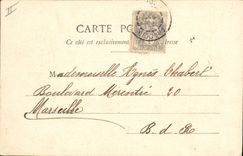 II
CARTE POSTALE
Ce côté est exclusivement réservé à l'adresse
Mademoiselle Agnès Chabert
Boulevard Merentié 20
Marseille
B. d R